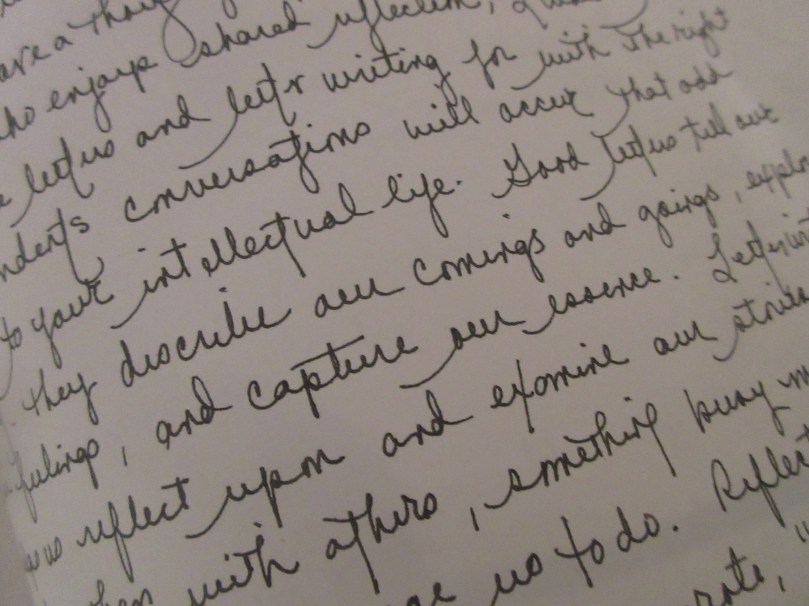 are a
who enjoys shared reflection, I
letters and letter writing for with the right
conversations will occur that add
to your intellectual life. Good letters tell our
they describe our comings and goings, explore
feelings, and capture our essence.
us reflect upon and examine our
with others, something busy
us to do. Reflect
rote,